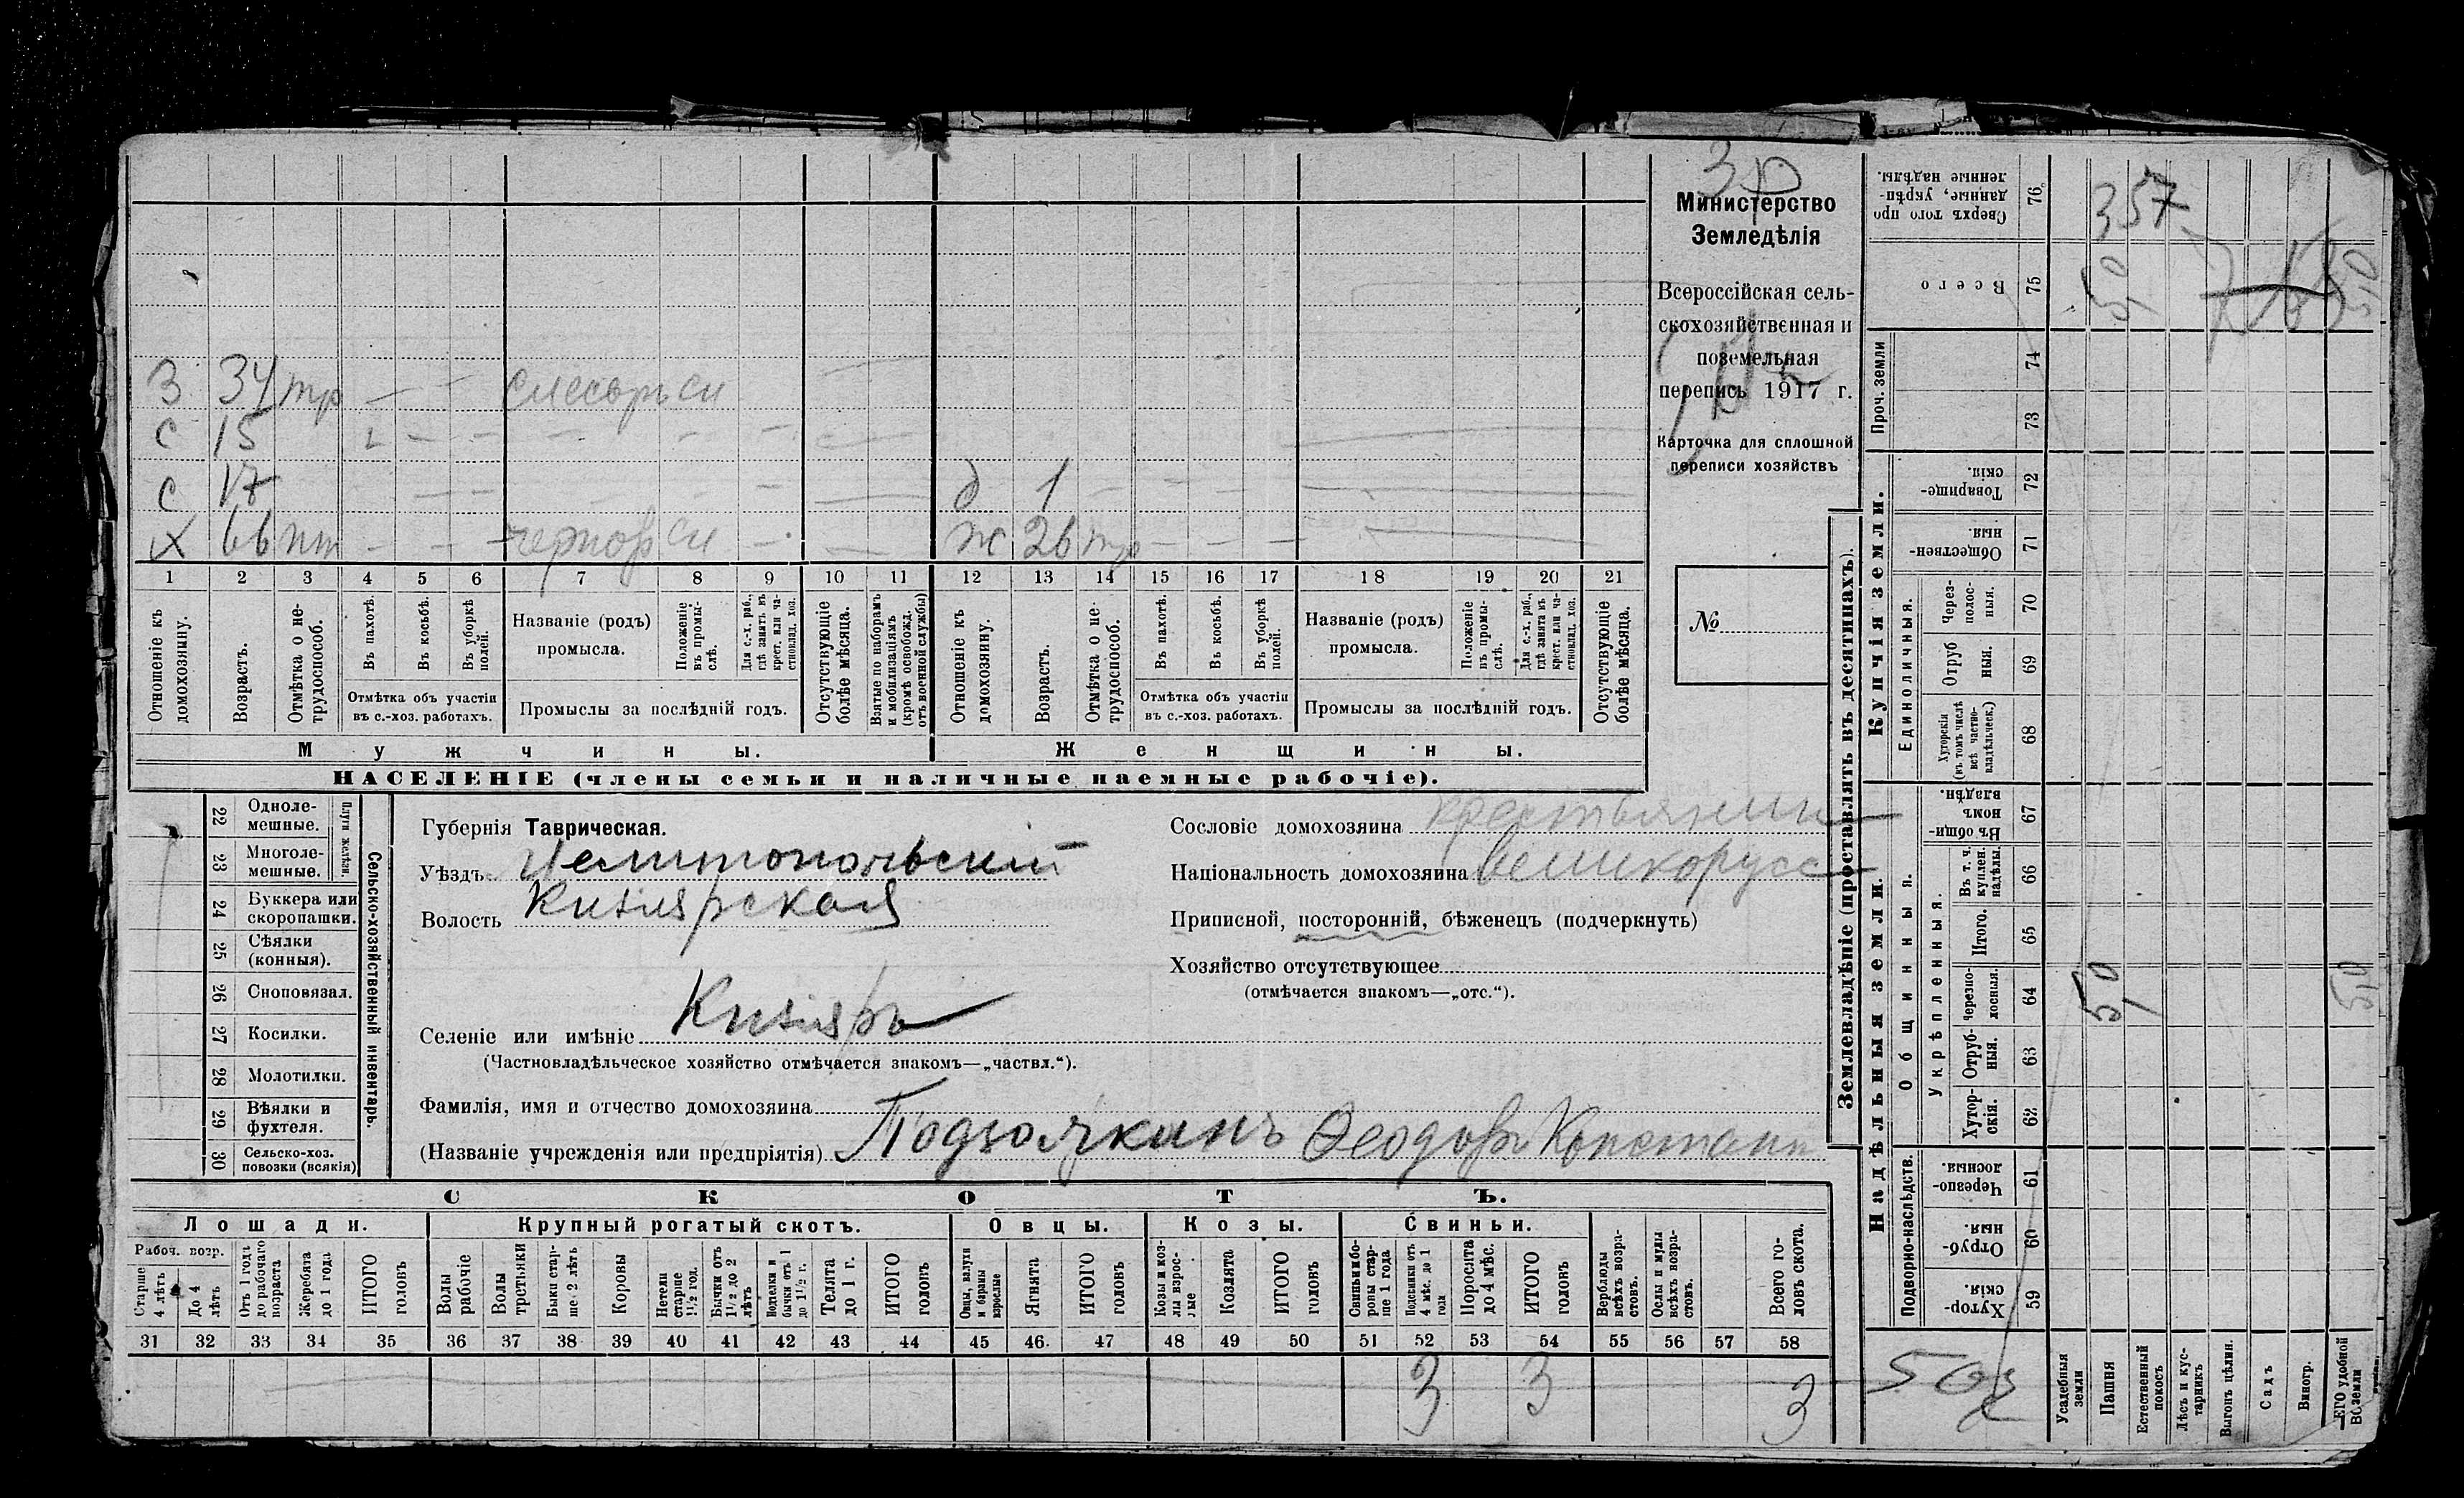 З 34 тр — — слесарь си
С 15 — — — — —
С 17 — — — — д 1 — — —
Х 66 пт — — чернор си — — ж 26 тр — — —
1 2 3 4 5 6 7 8 9 10 11 12 13 14 15 16 17 18 19 20 21
Отношеніе къ домохозяину.
Возрастъ.
Отмѣтка о не-трудоспособ.
Въ пахотѣ.
Въ косьбѣ.
Въ уборкѣ полей.
Отмѣтка объ участіи
въ с.-хоз. работахъ.
Названіе (родъ)
промысла.
Положеніе въ промы-слѣ.
Для с.-х. раб., гдѣ занятъ въ крест. или ча-стновлад. хоз.
Промыслы за послѣдній годъ.
Отсутствующіе болѣе мѣсяца.
Взятые по наборамъ и мобилизаціямъ (кромѣ освобожд. отъ военной службы)
Отношеніе къ домохозяину.
Возрастъ.
Отмѣтка о не-трудоспособ.
Въ пахотѣ.
Въ косьбѣ.
Въ уборкѣ полей.
Отмѣтка объ участіи
въ с.-хоз. работахъ.
Названіе (родъ)
промысла.
Положеніе въ промы-слѣ.
Для с.-х. раб., гдѣ занята въ крест. или ча-стновлад. хоз.
Промыслы за послѣдній годъ.
Отсутствующіе болѣе мѣсяца.
Мужчины. Женщины.
НАСЕЛЕНІЕ (члены семьи и наличные наемные рабочіе).
Министерство
Земледѣлія
Всероссійская сель-
скохозяйственная и
поземельная
перепись 1917 г.
Карточка для сплошной
переписи хозяйствъ
№
22 Одноле-мешные.
23 Многоле-мешные.
Плуги желѣзн.
24 Буккера или скоропашки.
25 Сѣялки (конныя).
26 Сноповязал.
27 Косилки.
28 Молотилки.
29 Вѣялки и фухтеля.
30 Сельско-хоз. повозки (всякія)
Сельско-хозяйственный инвентарь.
Губернія Таврическая.
Уѣздъ Мелитопольскій
Волость Кизиярская
Селеніе или имѣніе Кизияръ
(Частновладѣльческое хозяйство отмѣчается знакомъ—„частвл.“).
Фамилія, имя и отчество домохозяина
(Названіе учрежденія или предпріятія) Подзолкинъ Ѳеодоръ Констант
Сословіе домохозяина крестьянин
Національность домохозяина великорусс
Приписной, посторонній, бѣженецъ (подчеркнуть)
Хозяйство отсутствующее
(отмѣчается знакомъ—„отс.“).
СКОТЪ.
Лошади. Крупный рогатый скотъ. Овцы. Козы. Свиньи.
Рабоч. возр.
Старше 4 лѣтъ
До 4 лѣтъ
Отъ 1 года до рабочаго возраста
Жеребята до 1 года
ИТОГО головъ
Волы рабочіе
Волы третьяки
Быки стар-ше 2 лѣтъ
Коровы
Нетели старше 1½ год.
Бычки отъ 1½ до 2 лѣтъ
Телята до 1 г.
ИТОГО головъ
Овцы, валухи и бараны взрослые
Ягнята
ИТОГО головъ
Козы и коз-лы взрос-лые
Козлята
ИТОГО головъ
Свиньи и бо-ровы стар-ше 1 года
Подсвинки отъ 4 мѣс. до 1 года
Поросята до 4 мѣс.
ИТОГО головъ
Верблюды всѣхъ возра-стовъ.
Ослы и мулы всѣхъ возра-стовъ.
Всего го-ловъ скота.
31 32 33 34 35 36 37 38 39 40 41 42 43 44 45 46 47 48 49 50 51 52 53 54 55 56 57 58
3 3 3
Землевладѣніе (проставлять въ десятинахъ).
Надѣльныя земли. Купчія земли.
Проч. земли
Подворно-наслѣдств.
Общинныя.
Укрѣпленныя.
Единоличныя.
76 Сверхъ того про даннные, укрѣп-ленные надѣлы. 357
75 Всего 50 50
74
73
72 Товарище-скія.
71 Обществен-ныя
70 Через-полос-ныя.
69 Отруб ныя.
68 Хуторскія (въ томъ числѣ всѣ частно-владѣльческ.)
67 Въ общин-номъ владѣн.
66 Въ т. ч. куплен. надѣлы.
65 Итого.
64 Черезпо-лосныя. 50 50
63 Отруб-ныя.
62 Хутор-скія.
61 Черезпо-лосныя.
60 Отруб-ныя.
59 Хутор-скія.
Усадебныя земли
Пашня
Естественный покосъ
Лѣсъ и кус-тарникъ
Выгонъ цѣлин.
Садъ
Виногр.
ВСЕГО удобной земли